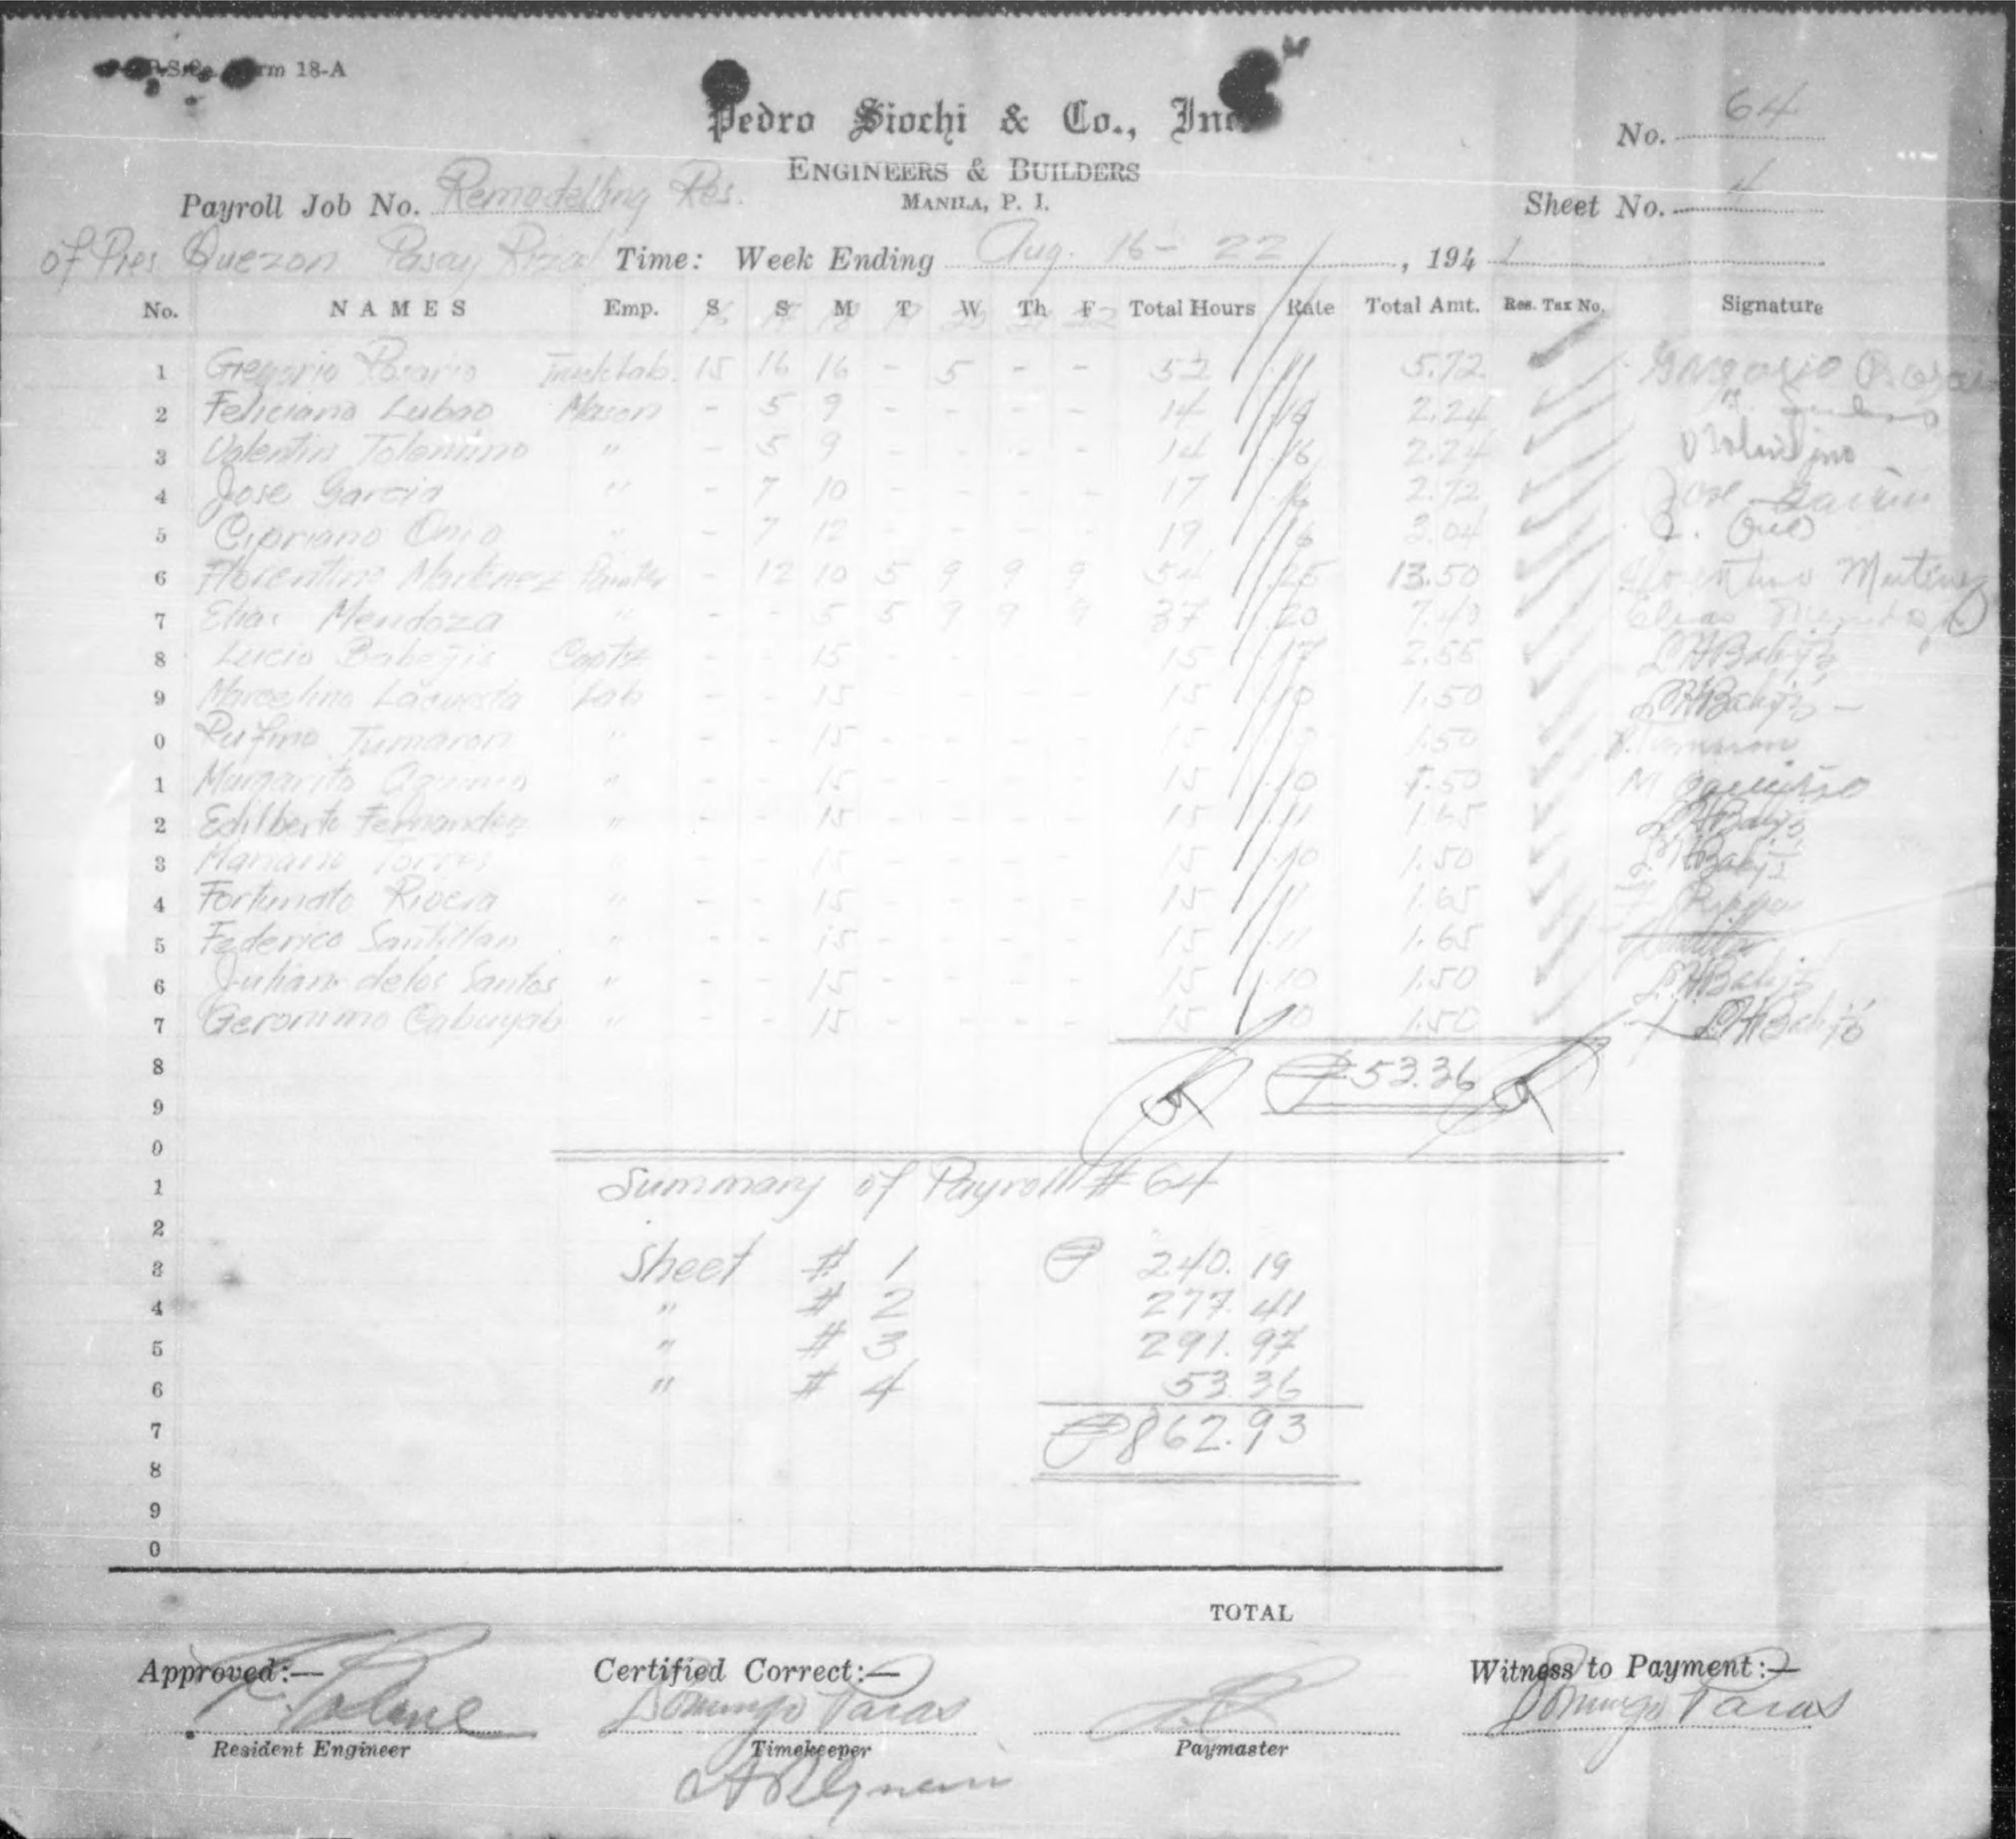 Form 18-A
Pedro Siochi & Co., Inc.
ENGINEERS & BUILDERS
MANILA, P. I.
No. 64
Sheet No. 4
Payroll Job No. Remodelling Res.
of Pres. Quezon Pasay Rizal Time: Week Ending Aug. 16 - 22, 1941
No. NAMES Emp. S S M T W Th F Total Hours Rate Total Amt. Res. Tax No. Signature
16 17 18 19 20 21 22
1 Gregorio Rosario Truck Lab. 15 16 16 - 5 - - 52 .11 5.72
2 Feliciano Lubao Mason - 5 9 - - - - 14 .16 2.24
3 Valentin Tolentino " - 5 9 - - - - 14 .16 2.24 V Tolentino
4 Jose Garcia " - 7 10 - - - - 17 .16 2.72 Jose Garcia
5 Cipriano Onio " - 7 12 - - - - 19 .16 3.04
6 Florentino Martinez Painter - 12 10 5 9 9 9 54 .25 13.50 Florentino Martinez
7 Elias Mendoza " - - 5 5 9 9 9 37 .20 7.40 Elias Mendoza
8 Lucio Babejis - - 15 - - - - 15 .17 2.55
9 Marcelino Lacuesta Lab - - 15 - - - - 15 .10 1.50
0 Rufino Tumaron " - - 15 - - - - 15 1.50
1 Margarito " - - 15 - - - - 15 .10 1.50
2 Edilberto Fernandez " - - 15 - - - - 15 .11 1.65
3 Mariano Torres " - - 15 - - - - 15 .10 1.50
4 Fortunato Rivera " - - 15 - - - - 15 .11 1.65
5 Federico Santillan " - - 15 - - - - 15 .11 1.65
6 Julian delos Santos " - - 15 - - - - 15 .10 1.50
7 Geronimo Cabuyab " - - 15 - - - - 15 .10 1.50
8 ₱ 53.36
9
0
1 Summary of Payroll # 64
2
3 Sheet # 1 ₱ 240.19
4 " # 2 277.41
5 " # 3 291.97
6 " # 4 53.36
7 ₱ 862.93
8
9
0
TOTAL
Approved:— Certified Correct:— Witness to Payment:—
Domingo Paras Domingo Paras
Resident Engineer Timekeeper Paymaster